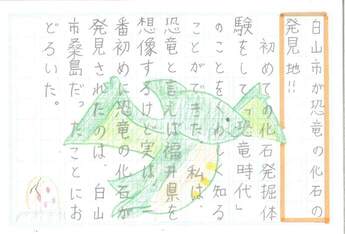 白山市が恐竜の化石の
発見地!!
初めての化石発掘体
験をして「恐竜時代」
のことをくわしく知る
ことができた。私は、
恐竜と言えば福井県を
想像するけど実は一
番初めに恐竜の化石が
発見されたのは、白山
市桑島だったことにお
どろいた。